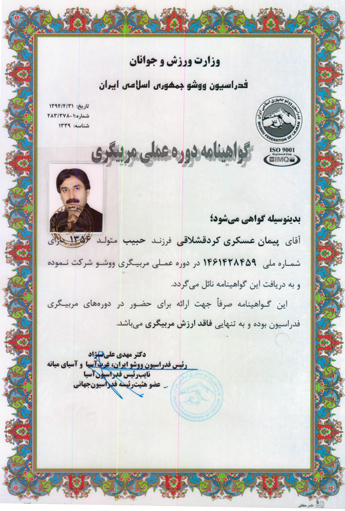 وزارت ورزش و جوانان
فدراسیون ووشو جمهوری اسلامی ایران
تاریخ: ۱۳۹۴/۴/۳۱
شماره: ۲۸۳/۳۷۸۰۱
شناسه: ۱۳۳۹
ISO 9001
IMQ
گواهینامه دوره عملی مربیگری
بدینوسیله گواهی می‌شود؛
آقای پیمان عسکری کردقشلاقی فرزند حبیب متولد ۱۳۵۶ دارای
شماره ملی ۱۴۶۱۴۲۸۴۵۹ در دوره عملی مربیگری ووشو شرکت نموده
و به دریافت این گواهینامه نائل می‌گردد.
این گواهینامه صرفاً جهت ارائه برای حضور در دوره‌های مربیگری
فدراسیون بوده و به تنهایی فاقد ارزش مربیگری می‌باشد.
دکتر مهدی علی نژاد
رئیس فدراسیون ووشو ایران، غرب آسیا و آسیای میانه
نایب رئیس فدراسیون آسیا
عضو هیئت رئیسه فدراسیون جهانی